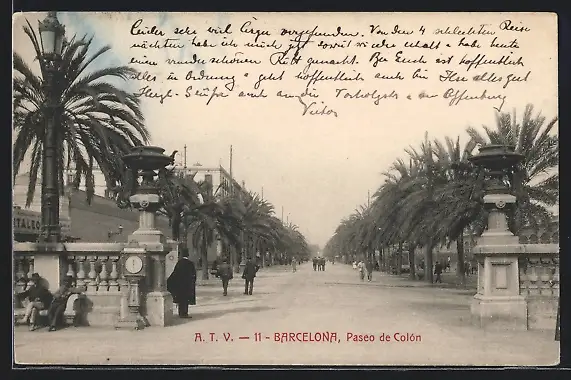 Leider sehr viel Ärger vorgefunden. Von den 4 schlechten Reise
nächten habe ich mich ganz gut wieder erholt & habe heute
einen wunderschönen Ritt gemacht. Bei Euch ist hoffentlich
alles in Ordnung & geht hoffentlich auch bei Dir alles gut
Herzl. Grüße auch an die & an Offenburg
Victor
TALEO
A. T. V. — 11 - BARCELONA, Paseo de Colón